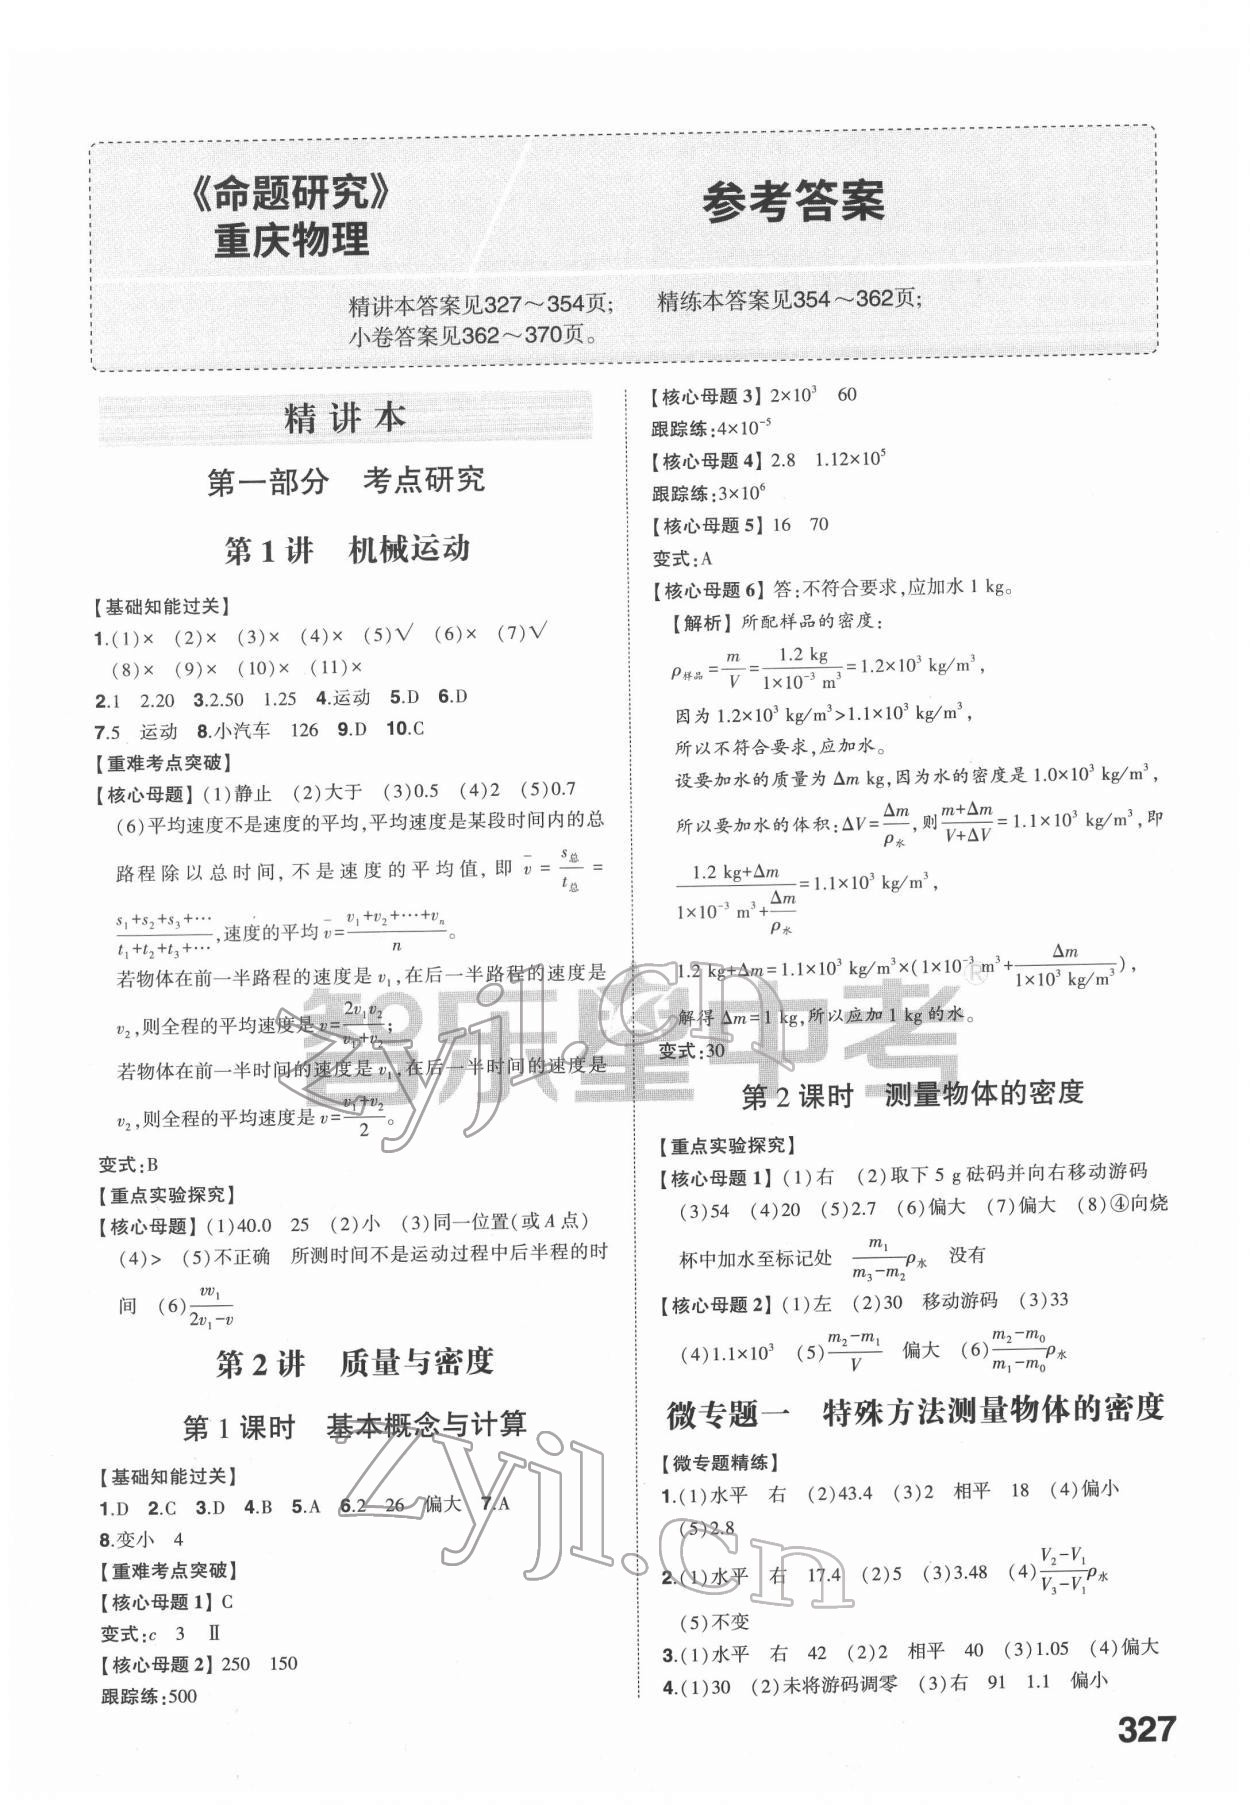 《命题研究》
重庆物理
参考答案
精讲本答案见327～354页; 精练本答案见354～362页;
小卷答案见362～370页。
精讲本
第一部分 考点研究
第1讲 机械运动
【基础知能过关】
1.(1)× (2)× (3)× (4)× (5)√ (6)× (7)√
(8)× (9)× (10)× (11)×
2.1 2.20 3.2.50 1.25 4.运动 5.D 6.D
7.5 运动 8.小汽车 126 9.D 10.C
【重难考点突破】
【核心母题】(1)静止 (2)大于 (3)0.5 (4)2 (5)0.7
(6)平均速度不是速度的平均,平均速度是某段时间内的总
路程除以总时间,不是速度的平均值,即 v̄=s总/t总=
(s₁+s₂+s₃+⋯)/(t₁+t₂+t₃+⋯),速度的平均 v̄=(v₁+v₂+⋯+vₙ)/n。
若物体在前一半路程的速度是 v₁,在后一半路程的速度是
v₂,则全程的平均速度是 v=2v₁v₂/(v₁+v₂);
若物体在前一半时间的速度是 v₁,在后一半时间的速度是
v₂,则全程的平均速度是 v=(v₁+v₂)/2。
变式:B
【重点实验探究】
【核心母题】(1)40.0 25 (2)小 (3)同一位置(或A点)
(4)> (5)不正确 所测时间不是运动过程中后半程的时
间 (6)vv₁/(2v₁-v)
第2讲 质量与密度
第1课时 基本概念与计算
【基础知能过关】
1.D 2.C 3.D 4.B 5.A 6.2 26 偏大 7.A
8.变小 4
【重难考点突破】
【核心母题1】C
变式:c 3 Ⅱ
【核心母题2】250 150
跟踪练:500
【核心母题3】2×10³ 60
跟踪练:4×10⁻⁵
【核心母题4】2.8 1.12×10⁵
跟踪练:3×10⁶
【核心母题5】16 70
变式:A
【核心母题6】答:不符合要求,应加水1 kg。
【解析】所配样品的密度:
ρ样品=m/V=1.2 kg/(1×10⁻³ m³)=1.2×10³ kg/m³,
因为1.2×10³ kg/m³>1.1×10³ kg/m³,
所以不符合要求,应加水。
设要加水的质量为Δm kg,因为水的密度是1.0×10³ kg/m³,
所以要加水的体积:ΔV=Δm/ρ水,则(m+Δm)/(V+ΔV)=1.1×10³ kg/m³,即
(1.2 kg+Δm)/(1×10⁻³ m³+Δm/ρ水)=1.1×10³ kg/m³,
1.2 kg+Δm=1.1×10³ kg/m³×(1×10⁻³ m³+Δm/(1×10³ kg/m³)),
解得Δm=1 kg,所以应加1 kg的水。
变式:30
第2课时 测量物体的密度
【重点实验探究】
【核心母题1】(1)右 (2)取下5 g砝码并向右移动游码
(3)54 (4)20 (5)2.7 (6)偏大 (7)偏大 (8)④向烧
杯中加水至标记处 m₁/(m₃-m₂)ρ水 没有
【核心母题2】(1)左 (2)30 移动游码 (3)33
(4)1.1×10³ (5)(m₂-m₁)/V 偏大 (6)(m₂-m₀)/(m₁-m₀)ρ水
微专题一 特殊方法测量物体的密度
【微专题精练】
1.(1)水平 右 (2)43.4 (3)2 相平 18 (4)偏小
(5)2.8
2.(1)水平 右 17.4 (2)5 (3)3.48 (4)(V₂-V₁)/(V₃-V₁)ρ水
(5)不变
3.(1)水平 右 42 (2)2 相平 40 (3)1.05 (4)偏大
4.(1)30 (2)未将游码调零 (3)右 91 1.1 偏小
327
智乐星中考®
zyjl.cn
zyjl.cn